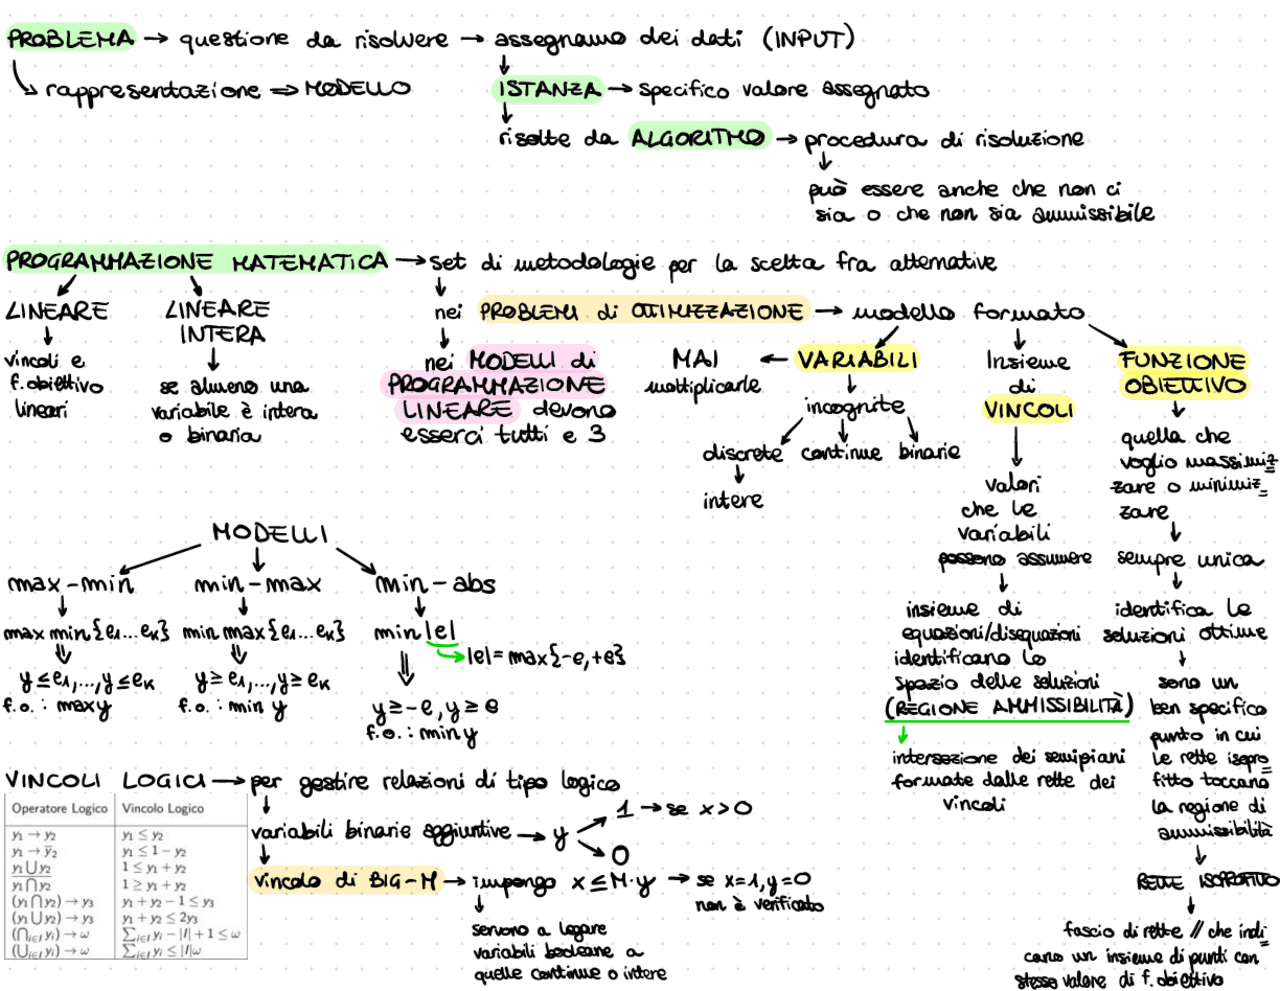 PROBLEMA → questione da risolvere → assegnamo dei dati (INPUT)
rappresentazione ⇒ MODELLO
ISTANZA → specifico valore assegnato
risolte da ALGORITMO → procedura di risoluzione
può essere anche che non ci
sia o che non sia ammissibile
PROGRAMMAZIONE MATEMATICA → set di metodologie per la scelta fra alternative
LINEARE
vincoli e
f.obiettivo
lineari
LINEARE
INTERA
se almeno una
variabile è intera
o binaria
nei PROBLEMI di OTTIMIZZAZIONE → modello formato
nei MODELLI di
PROGRAMMAZIONE
LINEARE devono
esserci tutti e 3
MAI ← VARIABILI
moltiplicarle
incognite
discrete continue binarie
intere
Insieme
di
VINCOLI
valori
che le
variabili
possono assumere
insieme di
equazioni/disequazioni
identificano lo
spazio delle soluzioni
(REGIONE AMMISSIBILITÀ)
intersezione dei semipiani
formate dalle rette dei
vincoli
FUNZIONE
OBIETTIVO
quella che
voglio massimiz
zare o minimiz
zare
sempre unica
identifica le
soluzioni ottime
sono un
ben specifico
punto in cui
le rette isopro
fitto toccano
la regione di
ammissibilità
RETTE ISOPROFITTO
fascio di rette // che indi
cano un insieme di punti con
stesso valore di f.obiettivo
MODELLI
max-min
max min{e1...eK}
y≤e1,...,y≤eK
f.o.: max y
min-max
min max{e1...eK}
y≥e1,...,y≥eK
f.o.: min y
min-abs
min|e|
|e|=max{-e,+e}
y≥-e, y≥e
f.o.: min y
VINCOLI LOGICI → per gestire relazioni di tipo logico
variabili binarie aggiuntive → y
1 → se x>0
0
vincolo di BIG-M → impongo x≤M·y → se x=1, y=0
non è verificato
servono a legare
variabili booleane a
quelle continue o intere
Operatore Logico | Vincolo Logico
y1 → y2 | y1 ≤ y2
y1 → ȳ2 | y1 ≤ 1 − y2
y1 ⋃ y2 | 1 ≤ y1 + y2
y1 ⋂ y2 | 1 ≥ y1 + y2
(y1 ⋂ y2) → y3 | y1 + y2 − 1 ≤ y3
(y1 ⋃ y2) → y3 | y1 + y2 ≤ 2y3
(⋂i∈I yi) → ω | ∑i∈I yi − |I| + 1 ≤ ω
(⋃i∈I yi) → ω | ∑i∈I yi ≤ |I|ω